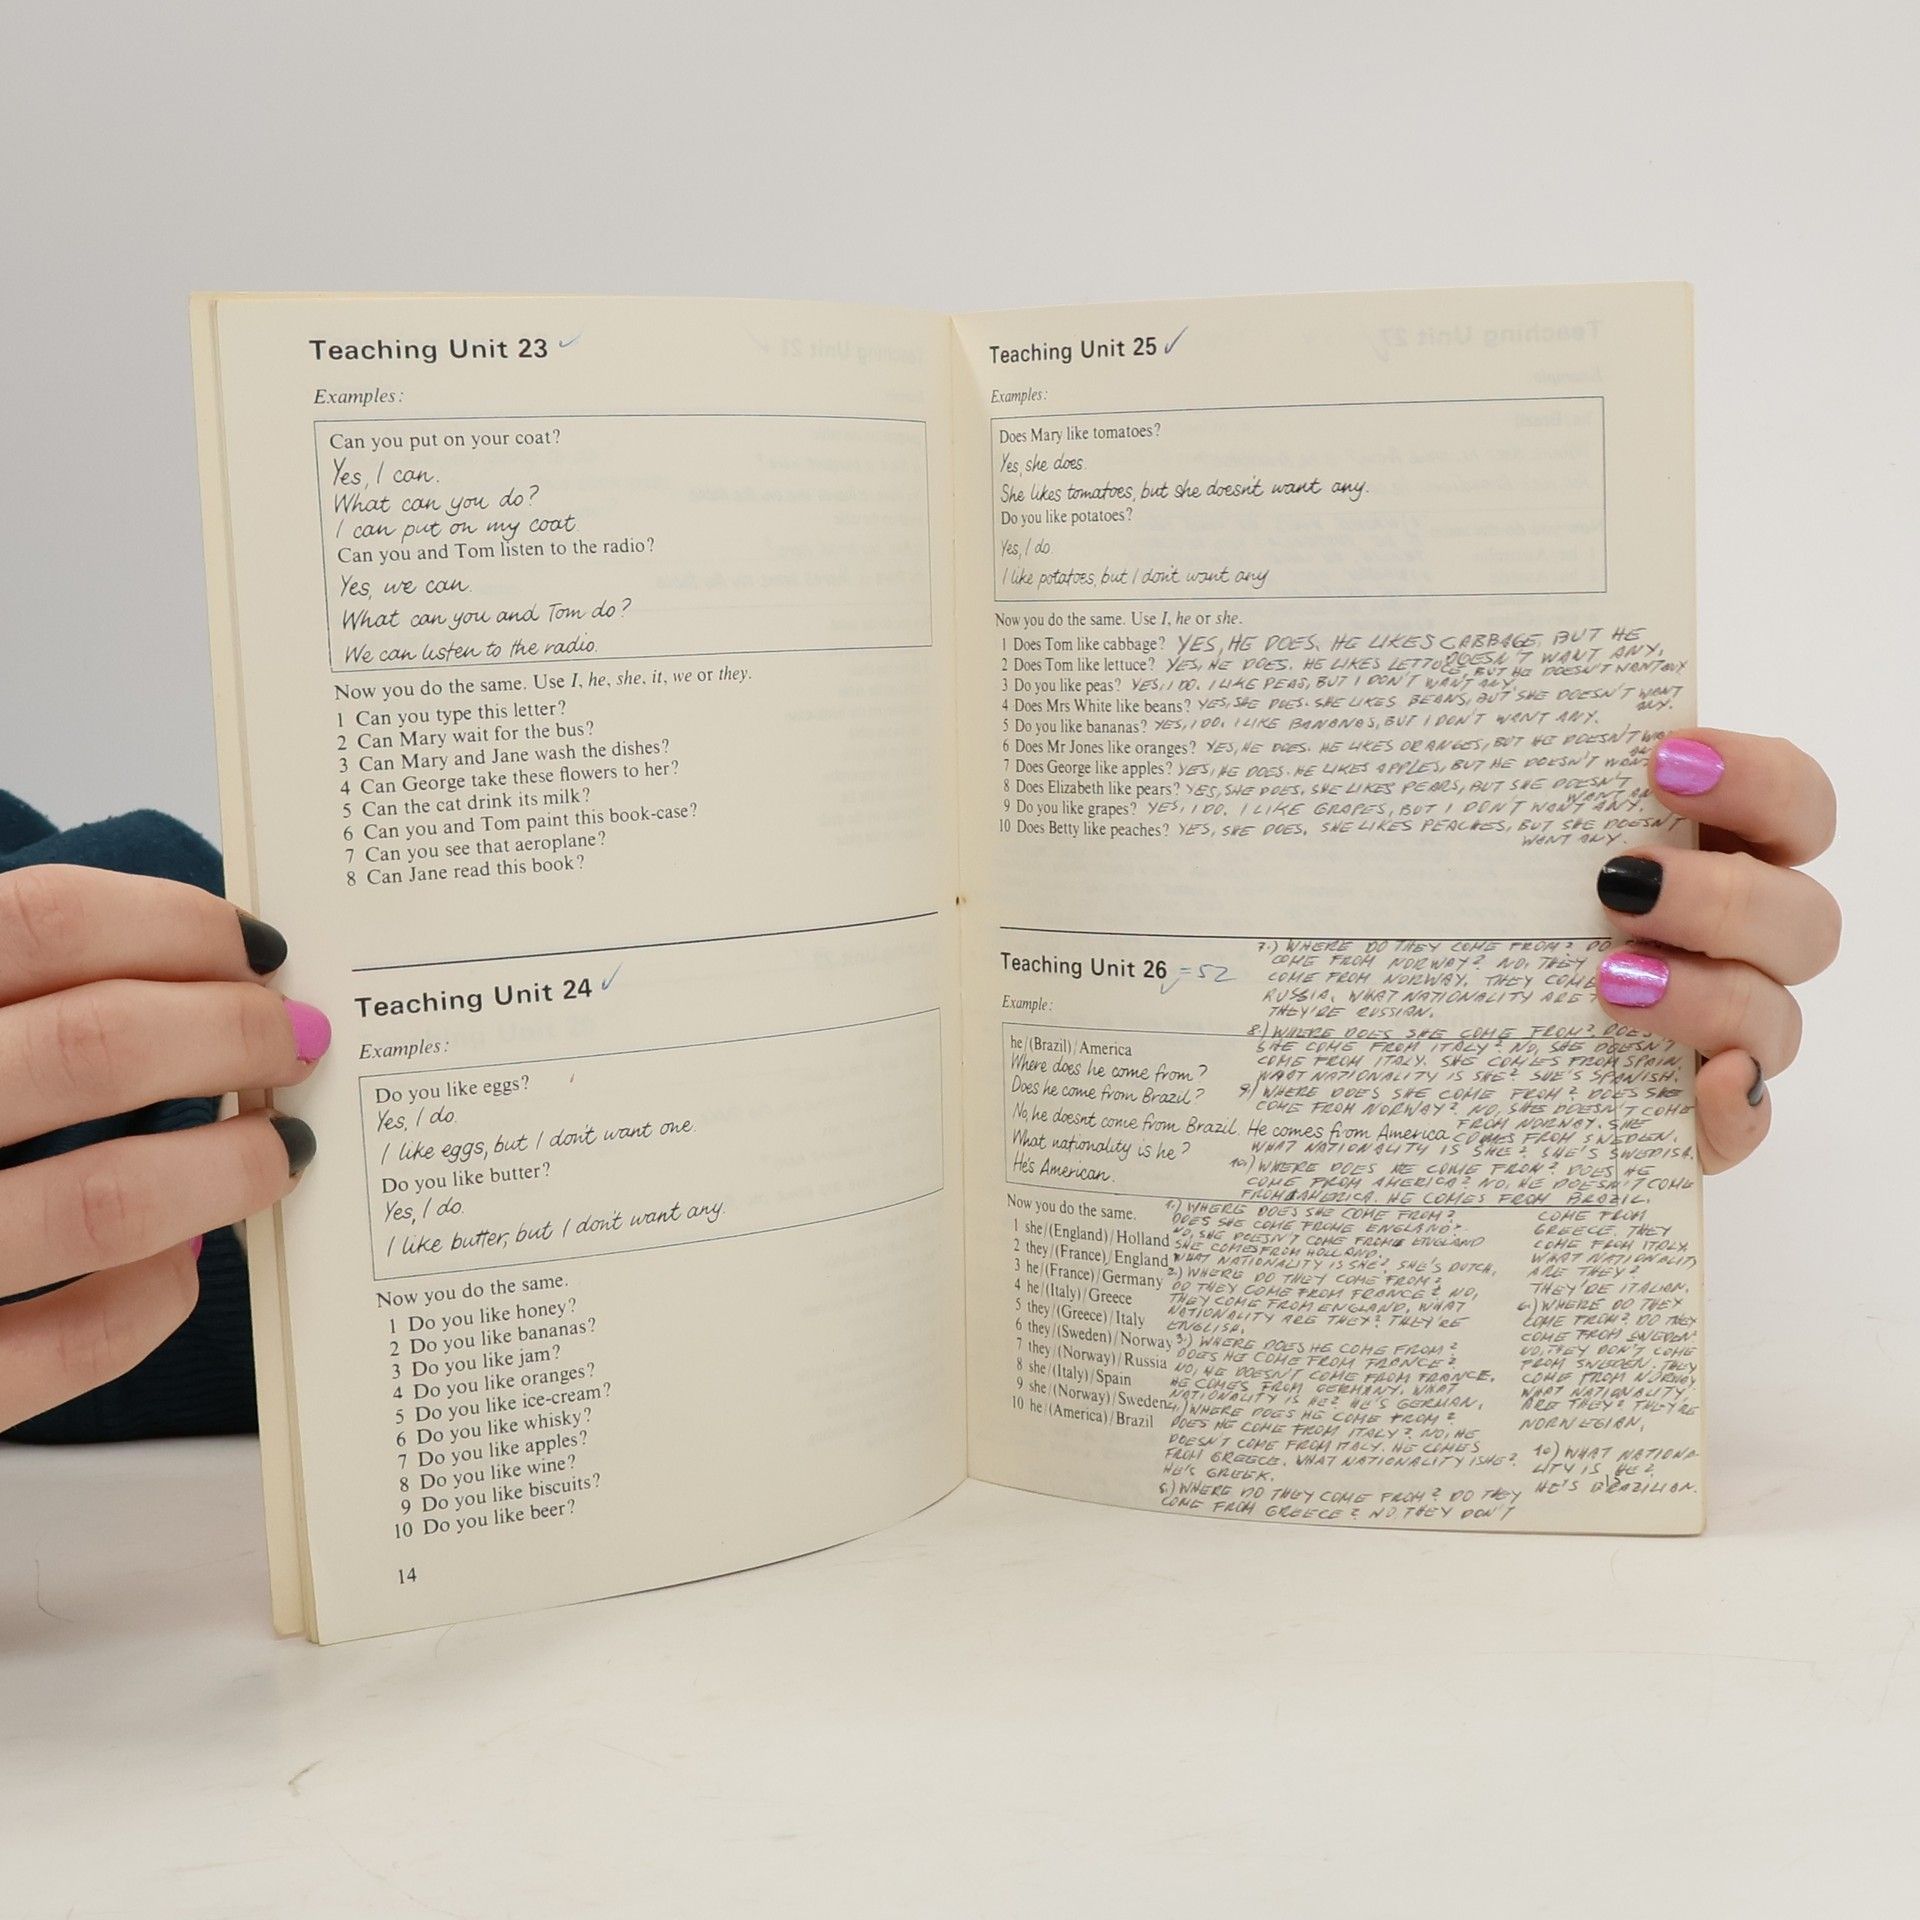 Teaching Unit 23 ✓
Examples:
Can you put on your coat?
Yes, I can.
What can you do?
I can put on my coat
Can you and Tom listen to the radio?
Yes, we can.
What can you and Tom do?
We can listen to the radio.
Now you do the same. Use I, he, she, it, we or they.
1 Can you type this letter?
2 Can Mary wait for the bus?
3 Can Mary and Jane wash the dishes?
4 Can George take these flowers to her?
5 Can the cat drink its milk?
6 Can you and Tom paint this book-case?
7 Can you see that aeroplane?
8 Can Jane read this book?
Teaching Unit 24 ✓
Examples:
Do you like eggs?
Yes, I do.
I like eggs, but I don't want one.
Do you like butter?
Yes, I do.
I like butter, but I don't want any.
Now you do the same.
1 Do you like honey?
2 Do you like bananas?
3 Do you like jam?
4 Do you like oranges?
5 Do you like ice-cream?
6 Do you like whisky?
7 Do you like apples?
8 Do you like wine?
9 Do you like biscuits?
10 Do you like beer?
14
Teaching Unit 25 ✓
Examples:
Does Mary like tomatoes?
Yes, she does.
She likes tomatoes, but she doesn't want any.
Do you like potatoes?
Yes, I do.
I like potatoes, but I don't want any
Now you do the same. Use I, he or she.
1 Does Tom like cabbage? YES, HE DOES. HE LIKES CABBAGE, BUT HE
DOESN'T WANT ANY.
2 Does Tom like lettuce? YES, HE DOES. HE LIKES LETTUCE, BUT HE DOESN'T WANT ANY
3 Do you like peas? YES, I DO. I LIKE PEAS, BUT I DON'T WANT ANY
4 Does Mrs White like beans? YES, SHE DOES. SHE LIKES BEANS, BUT SHE DOESN'T WANT
ANY.
5 Do you like bananas? YES, I DO. I LIKE BANANAS, BUT I DON'T WANT ANY.
6 Does Mr Jones like oranges? YES, HE DOES. HE LIKES ORANGES, BUT HE DOESN'T
7 Does George like apples? YES, HE DOES. HE LIKES APPLES, BUT HE DOESN'T WANT
8 Does Elizabeth like pears? YES, SHE DOES. SHE LIKES PEARS, BUT SHE DOESN'T
WANT
9 Do you like grapes? YES, I DO. I LIKE GRAPES, BUT I DON'T WANT ANY.
10 Does Betty like peaches? YES, SHE DOES. SHE LIKES PEACHES, BUT SHE DOESN'T
WANT ANY.
Teaching Unit 26 = 52
Example:
he/(Brazil)/America
Where does he come from?
Does he come from Brazil?
No, he doesn't come from Brazil. He comes from America
What nationality is he?
He's American.
Now you do the same.
1 she/(England)/Holland
2 they/(France)/England
3 he/(France)/Germany
4 he/(Italy)/Greece
5 they/(Greece)/Italy
6 they/(Sweden)/Norway
7 they/(Norway)/Russia
8 she/(Italy)/Spain
9 she/(Norway)/Sweden
10 he/(America)/Brazil
1.) WHERE DOES SHE COME FROM?
DOES SHE COME FROME ENGLAND?
NO, SHE DOESN'T COME FROM ENGLAND
SHE COMES FROM HOLLAND.
WHAT NATIONALITY IS SHE? SHE'S DUTCH.
2.) WHERE DO THEY COME FROM?
DO THEY COME FROM FRANCE? NO,
THEY COME FROM ENGLAND. WHAT
NATIONALITY ARE THEY? THEY'RE
ENGLISH.
3.) WHERE DOES HE COME FROM?
DOES HE COME FROM FRANCE?
NO, HE DOESN'T COME FROM FRANCE.
HE COMES FROM GERMANY. WHAT
NATIONALITY IS HE? HE'S GERMAN.
4.) WHERE DOES HE COME FROM?
DOES HE COME FROM ITALY? NO, HE
DOESN'T COME FROM ITALY. HE COMES
FROM GREECE. WHAT NATIONALITY IS HE?
HE'S GREEK.
5.) WHERE DO THEY COME FROM? DO THEY
COME FROM GREECE? NO, THEY DON'T
COME FROM
GREECE. THEY
COME FROM ITALY.
WHAT NATIONALITY
ARE THEY?
THEY'RE ITALIAN.
6.) WHERE DO THEY
COME FROM? DO THEY
COME FROM SWEDEN?
NO, THEY DON'T COME
FROM SWEDEN. THEY
COME FROM NORWAY.
WHAT NATIONALITY
ARE THEY? THEY'RE
NORWEGIAN.
7.) WHERE DO THEY COME FROM? DO
COME FROM NORWAY? NO, THEY
COME FROM NORWAY. THEY COME
RUSSIA. WHAT NATIONALITY ARE
THEY'RE RUSSIAN.
8.) WHERE DOES SHE COME FROM? DOES
SHE COME FROM ITALY? NO, SHE DOESN'T
COME FROM ITALY. SHE COMES FROM SPAIN.
WHAT NATIONALITY IS SHE? SHE'S SPANISH.
9.) WHERE DOES SHE COME FROM? DOES SHE
COME FROM NORWAY? NO, SHE DOESN'T COME
FROM NORWAY. SHE
COMES FROM SWEDEN.
WHAT NATIONALITY IS SHE? SHE'S SWEDISH.
10.) WHERE DOES HE COME FROM? DOES HE
COME FROM AMERICA? NO, HE DOESN'T COME
FROM AMERICA. HE COMES FROM BRAZIL.
10) WHAT NATIONA-
LITY IS HE?
HE'S BRAZILIAN.